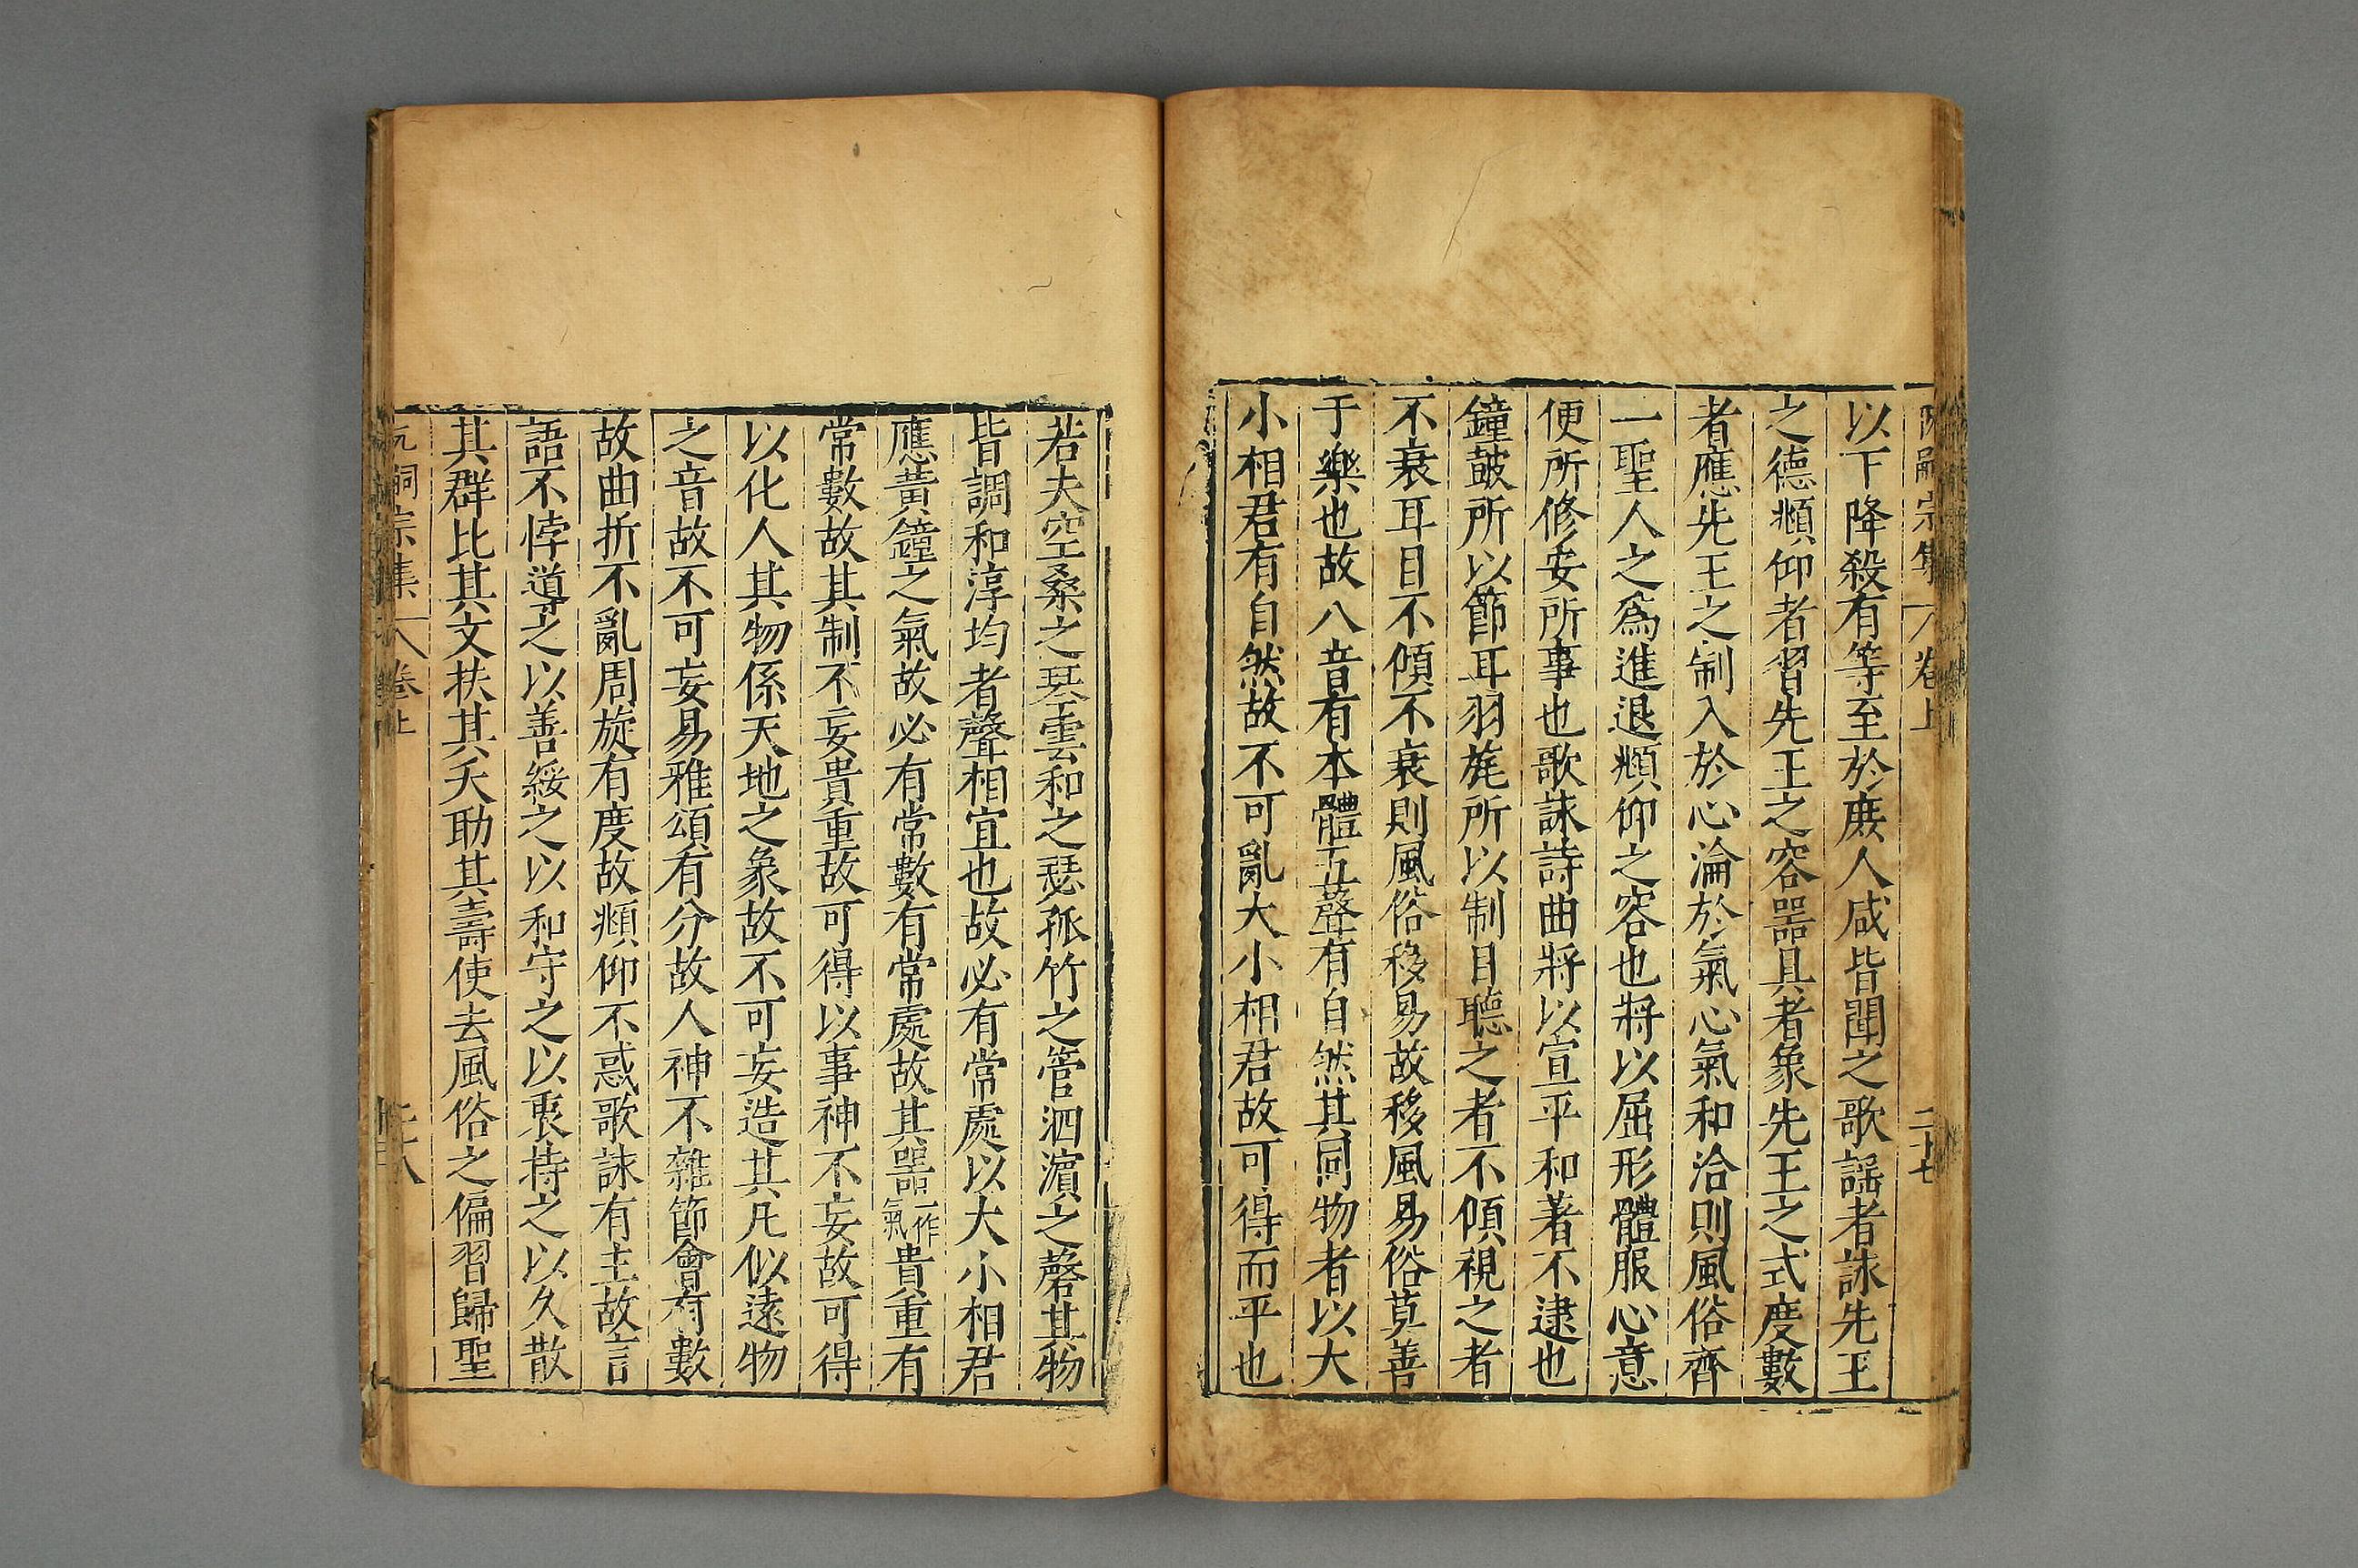 阮嗣宗集 卷上 二十七
以下降殺有等至於庶人咸皆聞之歌謡者詠先王
之德頫仰者習先王之容器具者象先王之式度數
者應先王之制入於心淪於氣心氣和洽則風俗齊
一聖人之爲進退頫仰之容也將以屈形體服心意
便所修安所事也歌詠詩曲將以宣平和著不逮也
鐘鼓所以節耳羽旄所以制目聽之者不傾視之者
不衰耳目不傾不衰則風俗移易故移風易俗莫善
于樂也故八音有本體五聲有自然其同物者以大
小相君有自然故不可亂大小相君故可得而平也
若夫空桑之琴雲和之瑟孤竹之管泗濵之磬其物
皆調和淳均者聲相宜也故必有常處以大小相君
應黃鐘之氣故必有常數有常處故其器一作氣貴重有
常數故其制不妄貴重故可得以事神不妄故可得
以化人其物係天地之象故不可妄造其凡似遠物
之音故不可妄易雅頌有分故人神不雜節會有數
故曲折不亂周旋有度故頫仰不惑歌詠有主故言
語不悖導之以善綏之以和守之以衷持之以久散
其群比其文扶其夭助其壽使去風俗之偏習歸聖
阮嗣宗集 卷上 二十八